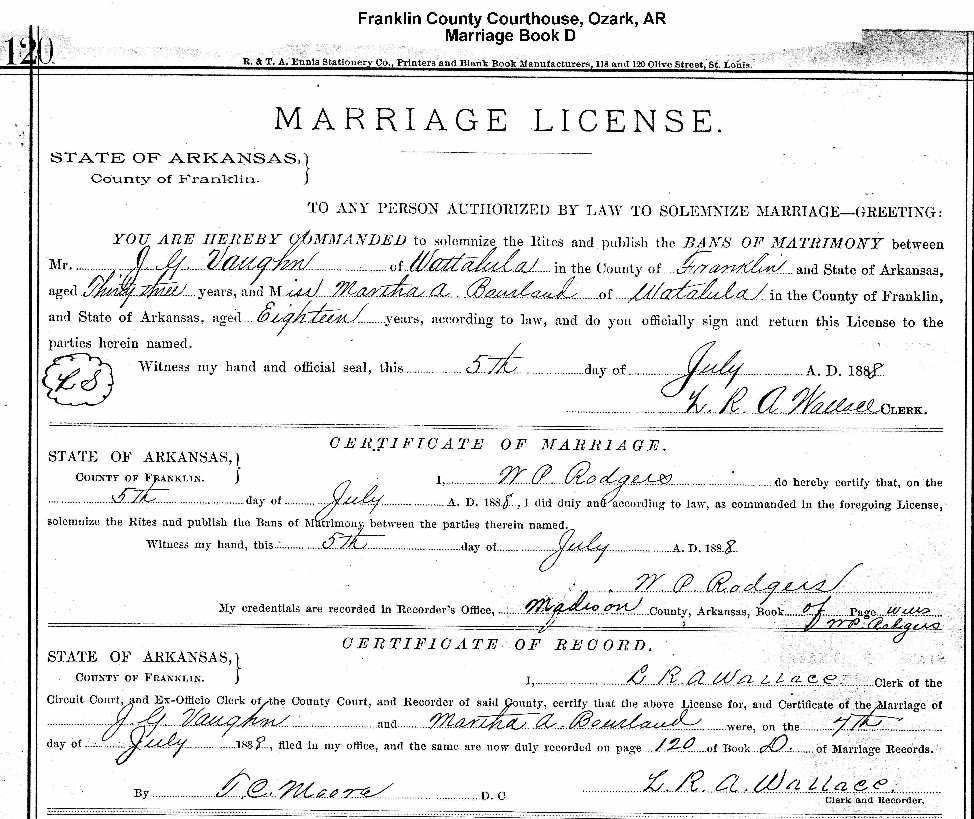 Franklin County Courthouse, Ozark, AR
Marriage Book D
120
R. & T. A. Ennis Stationery Co., Printers and Blank Book Manufacturers, 118 and 120 Olive Street, St. Louis.
MARRIAGE LICENSE.
STATE OF ARKANSAS,
County of Franklin.
TO ANY PERSON AUTHORIZED BY LAW TO SOLEMNIZE MARRIAGE—GREETING:
YOU ARE HEREBY COMMANDED to solemnize the Rites and publish the BANS OF MATRIMONY between
Mr. J. G. Vaughn of Wattalula in the County of Franklin and State of Arkansas,
aged Thirty three years, and Miss Martha A. Bourland of Watalula in the County of Franklin,
and State of Arkansas, aged Eighteen years, according to law, and do you officially sign and return this License to the
parties herein named.
Witness my hand and official seal, this 5th day of July A. D. 1888
LS
L. R. A Wallace CLERK.
CERTIFICATE OF MARRIAGE.
STATE OF ARKANSAS,
COUNTY OF FRANKLIN.
I, W P Rodgers do hereby certify that, on the
5th day of July A. D. 1888, I did duly and according to law, as commanded in the foregoing License,
solemnize the Rites and publish the Bans of Matrimony between the parties therein named.
Witness my hand, this 5th day of July A. D. 1888
W P Rodgers
My credentials are recorded in Recorder's Office, Madison County, Arkansas, Book of Page
WP Rodgers
CERTIFICATE OF RECORD.
STATE OF ARKANSAS,
COUNTY OF FRANKLIN.
I, L R A Wallace Clerk of the
Circuit Court, and Ex-Officio Clerk of the County Court, and Recorder of said County, certify that the above License for, and Certificate of the Marriage of
J G Vaughn and Martha A. Bourland were, on the 7th
day of July 1888, filed in my office, and the same are now duly recorded on page 120 of Book D. of Marriage Records.
By T. C. Moore D. C
L. R. A. Wallace.
Clerk and Recorder.